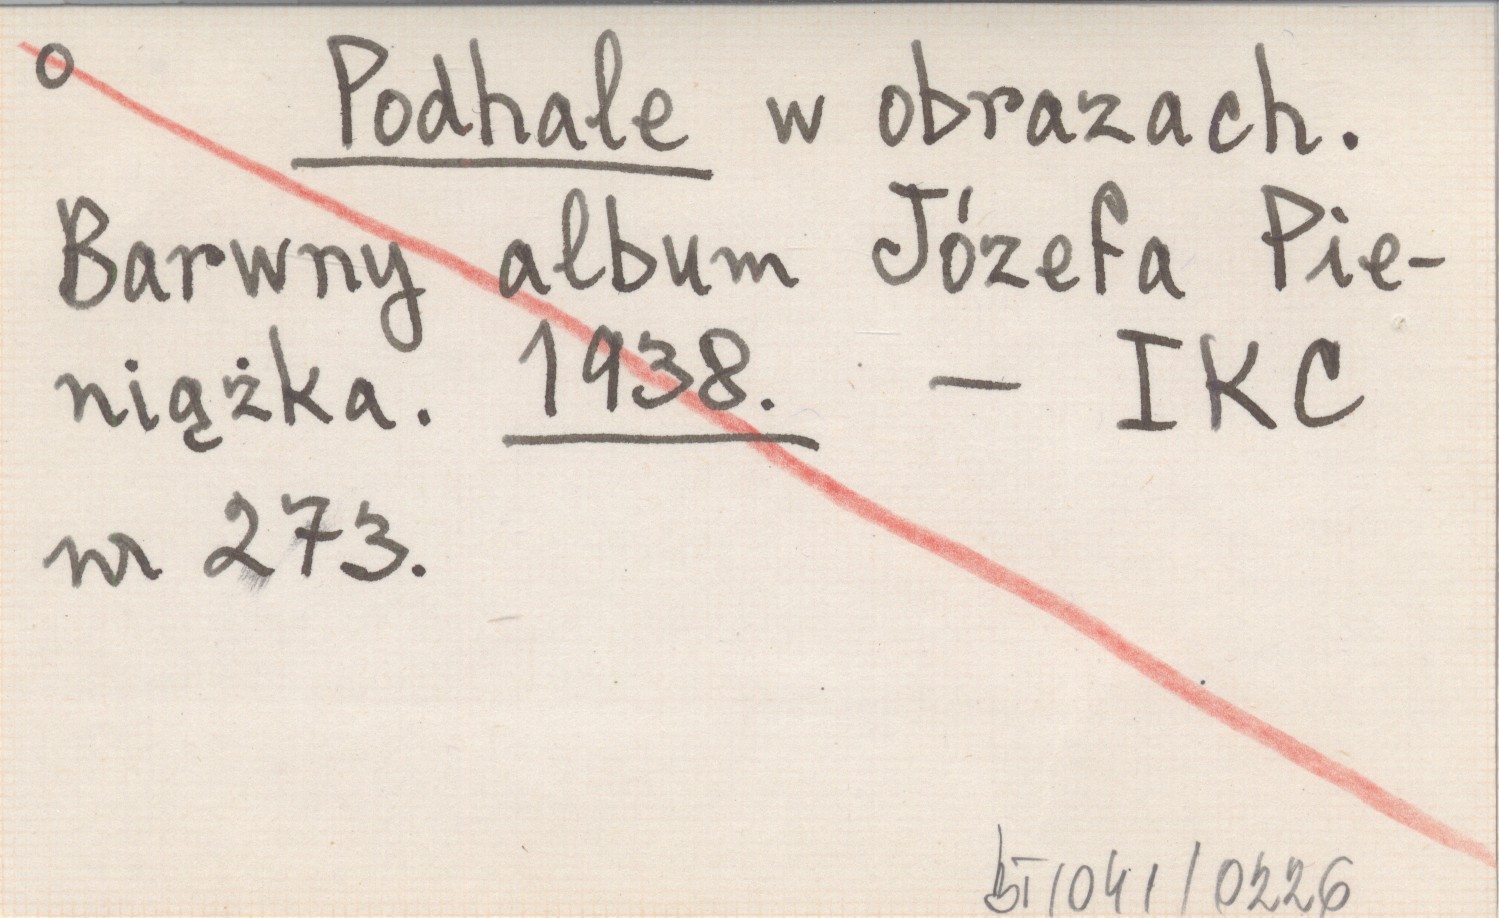 o Podhale w obrazach.
Barwny album Józefa Pie-
niążka. 1938. — IKC
nr 273.
BT/041/0226